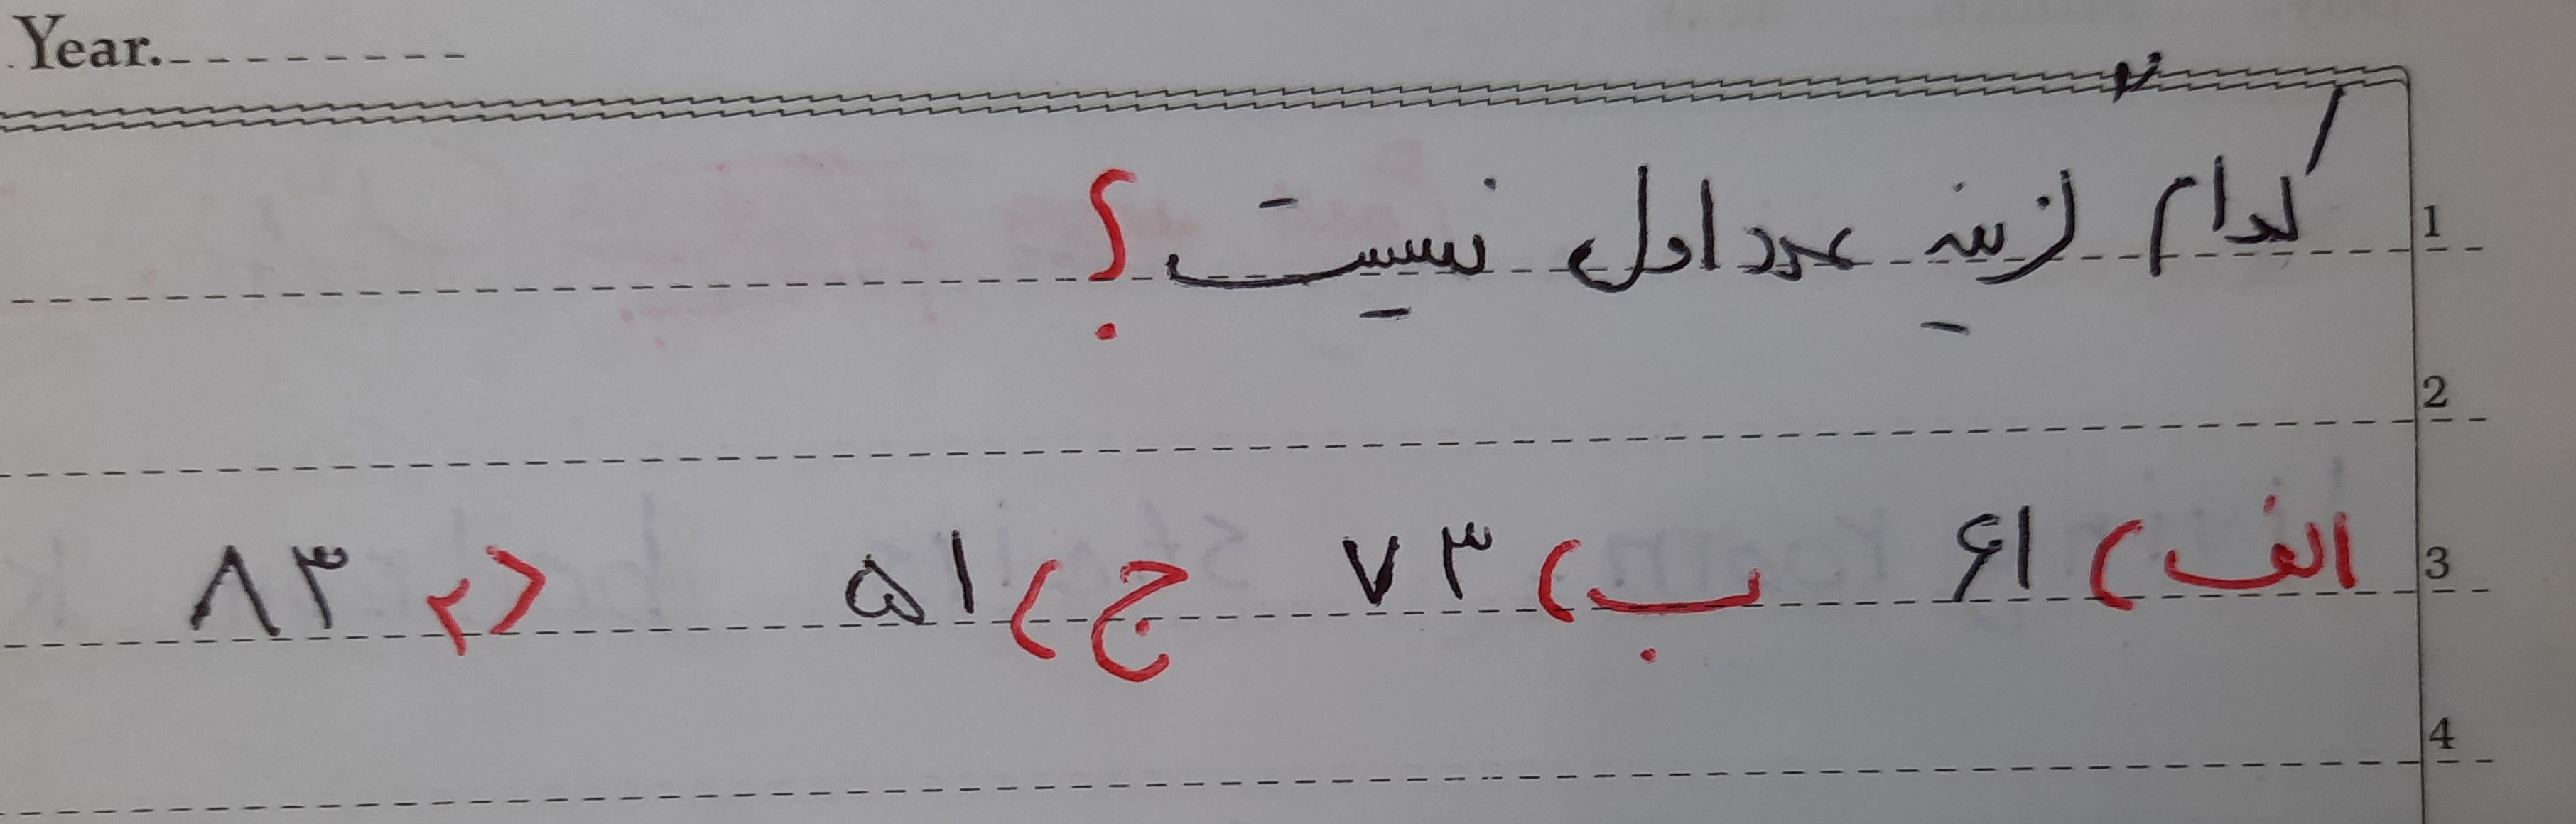 Year.
کدام گزینه عدد اول نیست؟
1
2
الف) ۶۱ ب) ۷۳ ج) ۵۱ د) ۸۳
3
4